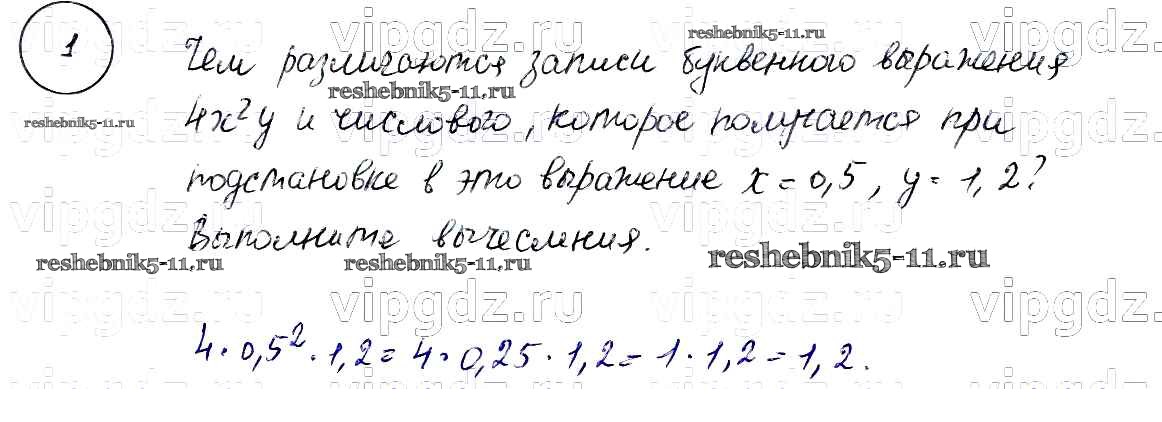 1
Чем различаются записи буквенного выражения
4x²y и числового, которое получается при
подстановке в это выражение x = 0,5, y = 1,2?
Выполните вычесления.
4·0,5²·1,2 = 4·0,25·1,2 = 1·1,2 = 1,2.
vipgdz.ru vipgdz.ru vipgdz.ru vipgdz.ru
reshebnik5-11.ru
reshebnik5-11.ru
reshebnik5-11.ru
vipgdz.ru vipgdz.ru vipgdz.ru vipgdz.ru
vipgdz.ru vipgdz.ru vipgdz.ru vipgdz.ru
reshebnik5-11.ru reshebnik5-11.ru reshebnik5-11.ru
vipgdz.ru vipgdz.ru vipgdz.ru vipgdz.ru